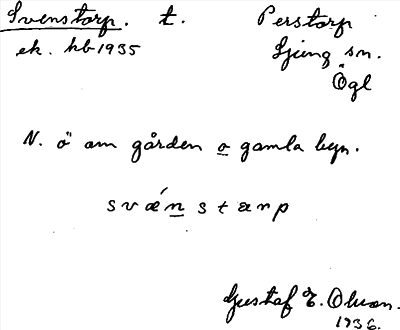 Svenstorp. t. Perstorp
ek. hb 1935 Ljung sn.
Ögl
N. ö om gården o gamla byn.
s v æ´ n s t a r p
Gustaf E. Olsson.
1936.